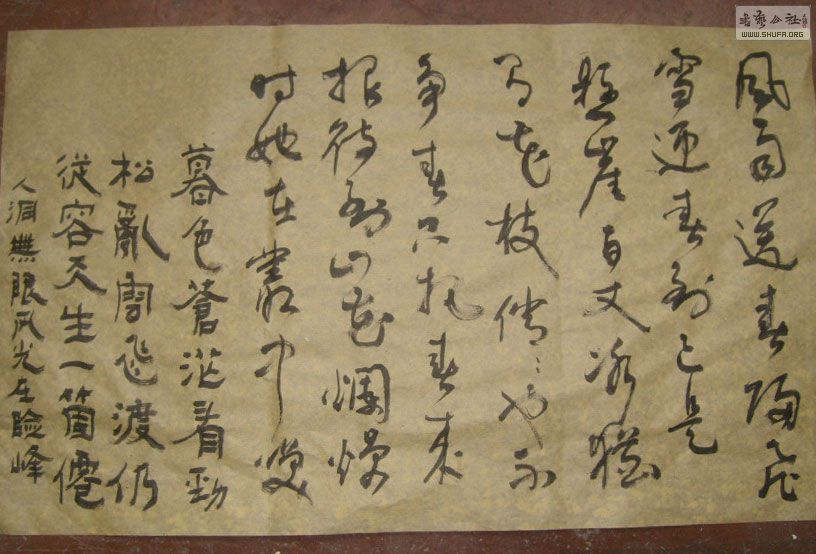 书艺公社
WWW.SHUFA.ORG
风雨送春归飞
雪迎春到已是
悬崖百丈冰犹
有花枝俏俏也不
争春只把春来
报待到山花爛熳
时她在叢中咲
暮色蒼茫看勁
松亂雲飛渡仍
從容天生一箇僊
人洞無限风光在險峰